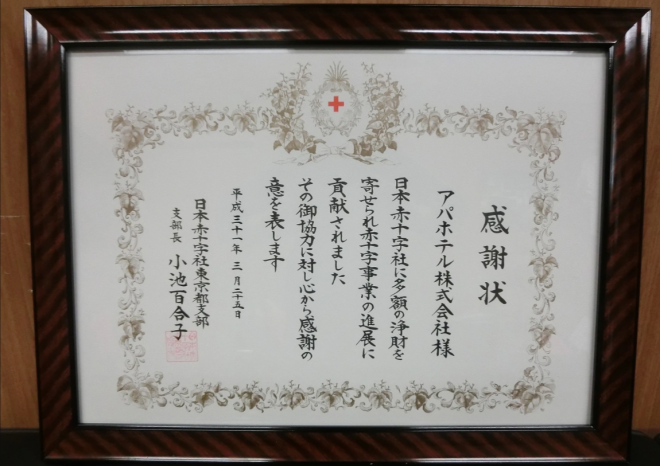 感謝状
アパホテル株式会社様
日本赤十字社に多額の浄財を
寄せられ赤十字事業の進展に
貢献されました
その御協力に対し心から感謝の
意を表します
平成三十一年三月二十五日
日本赤十字社東京都支部
支部長 小池百合子